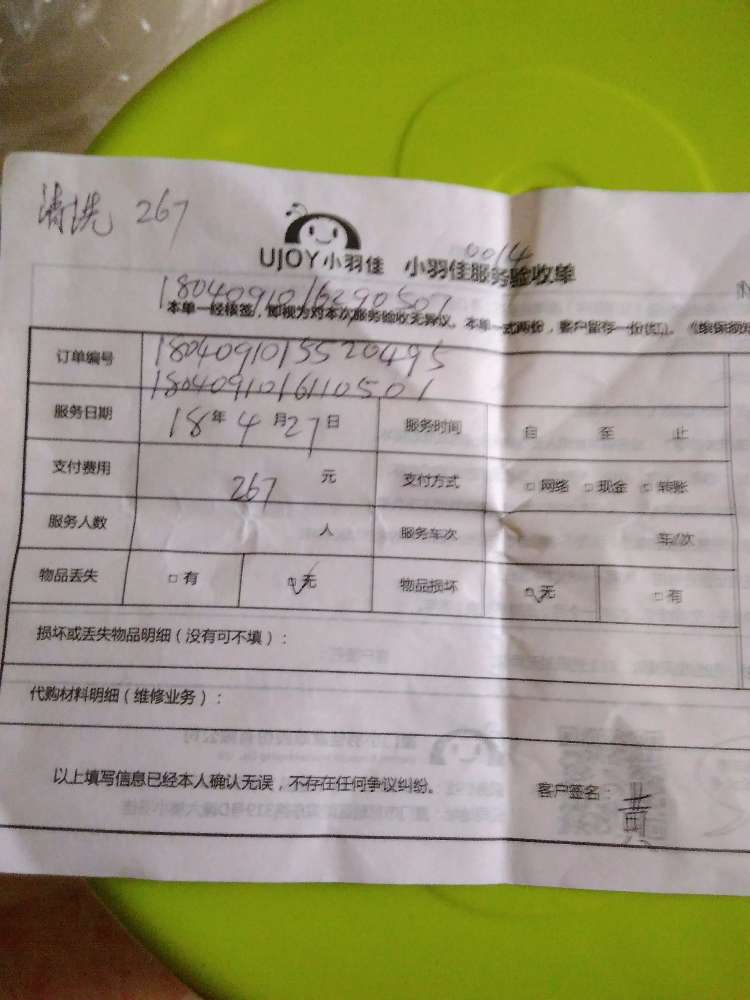 清洗 267
0014
UJOY小羽佳 小羽佳服务验收单
1804091016290501
本单一经核签，即视为对本次服务验收无异议。本单一式两份，客户留存一份(红)。
订单编号 1804091015520495
1804091016110501
服务日期 18年4月27日 服务时间 自 至 止
支付费用 267 元 支付方式 □网络 □现金 □转账
服务人数 人 服务车次 车/次
物品丢失 □有 ☑无 物品损坏 ☑无 □有
损坏或丢失物品明细（没有可不填）：
代购材料明细（维修业务）：
以上填写信息已经本人确认无误，不存在任何争议纠纷。 客户签名：黄